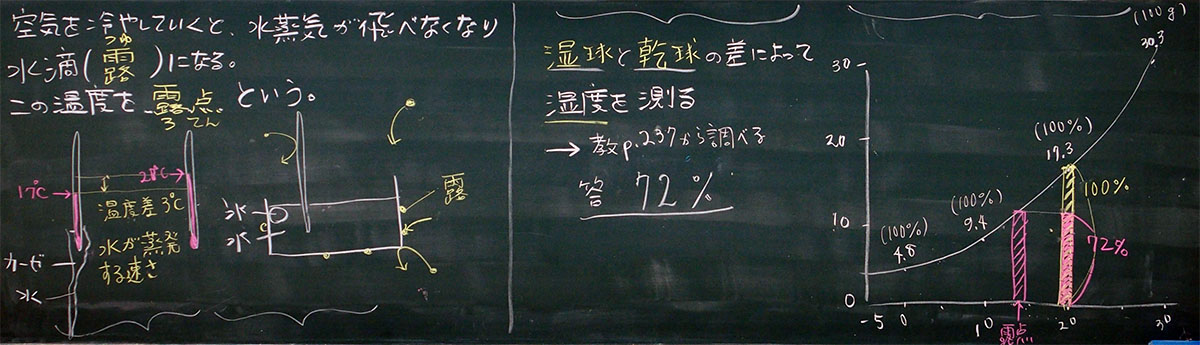 空気を冷やしていくと、水蒸気が飛べなくなり
水滴(露)になる。
つゆ
この温度を露点という。
ろてん
17℃
20℃
温度差3℃
水が蒸発
する速さ
ガーゼ
水
氷
水
露
湿球と乾球の差によって
湿度を測る
→ 教p.237から調べる
答 72%
30
20
10
0
-5
0
10
20
30
露点
(100%)
4.8
(100%)
9.4
(100%)
17.3
(100g)
30.3
100%
72%